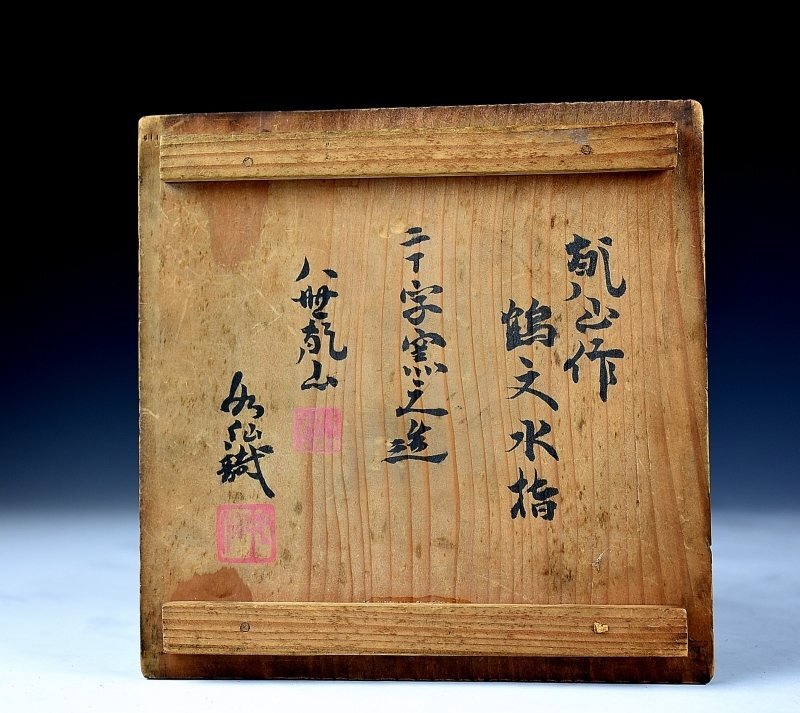 乾山作
鶴文水指
二十字窯之造
八世乾山